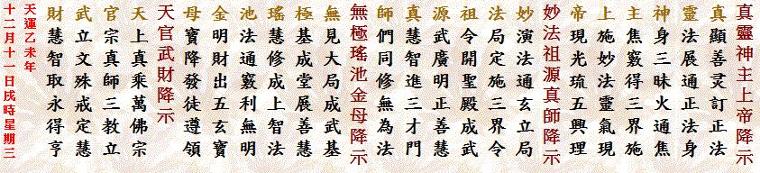 真靈神主上帝降示
真顯善灵訂正法
靈法展通正法身
神身三昧火通焦
主焦竅得三界施
上施妙法靈氣現
帝現光琉五興理
妙法祖源真師降示
妙演法通玄立局
法局定施三界令
祖令開聖殿成武
源武廣明正善慧
真慧智進三才門
師們同修無為法
無極瑤池金母降示
無見大局成武基
極基成堂展善慧
瑤慧修成上智法
池法通竅利無明
金明財出五玄寶
母寶降發徒遵領
天官武財降示
天上真乘萬佛宗
官宗真師三教立
武立文殊戒定慧
財慧智取永得亨
天運乙未年
十二月十一日戌時星期三